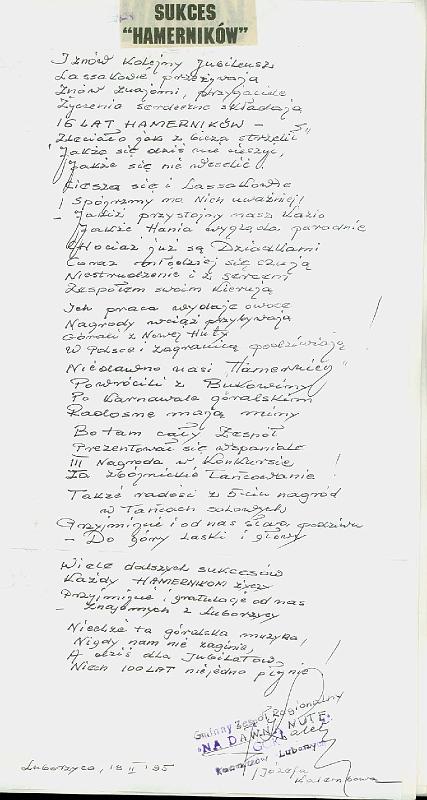 SUKCES
"HAMERNIKÓW"
I znów kolejny Jubileusz
Lassakowie przeżywają
Znów znajomi, przyjaciele
Życzenia serdeczne składają
15 LAT HAMERNIKÓW -
Zleciało jak z bicza strzelił
Jakże się dziś nie cieszyć,
Jakże się nie weselić.
Cieszą się i Lassakowie
! Spójrzmy na Nich uważniej!
- Jakiż przystojny nasz Kazio
Jakże Hania wygląda paradnie
Chociaż już są Dziadkami
Coraz młodziej się czują
Niestrudzenie i z sercem
Zespołem swoim kierują
Ich praca wydaje owoce
Nagrody wciąż przybywają
Górali z Nowej Huty
W Polsce i zagranicą podziwiają
Niedawno nasi "Hamernicy"
Powrócili z Bukowiny
Po Karnawale góralskim
Radosne mają miny
Bo tam cały Zespół
Prezentował się wspaniale
III Nagroda w Konkursie
Za zbójnickie Tańcowanie!
Także radość z 5-ciu nagród
w Tańcach solowych
Przyjmijcie i od nas
- Do góry Laski i głowy
Wiele dalszych sukcesów
Każdy HAMERNIKOM życzy
Przyjmijcie i gratulacje od nas
- Znajomych z Luborzycy
Niechże ta góralska muzyka,
Nigdy nam nie zaginie,
A dziś dla Jubilatów,
Niech 100 LAT niejedno płynie!
Gminny Zespół Regionalny
"NA DAWNĄ NUTĘ"
Kocmyrzów Luborzyca
Józefa
Kalembowa
Luborzyca, 18 II '95